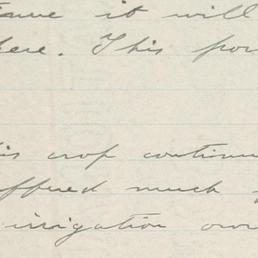 it will
here. This
his crop continu
ffered much
irrigation